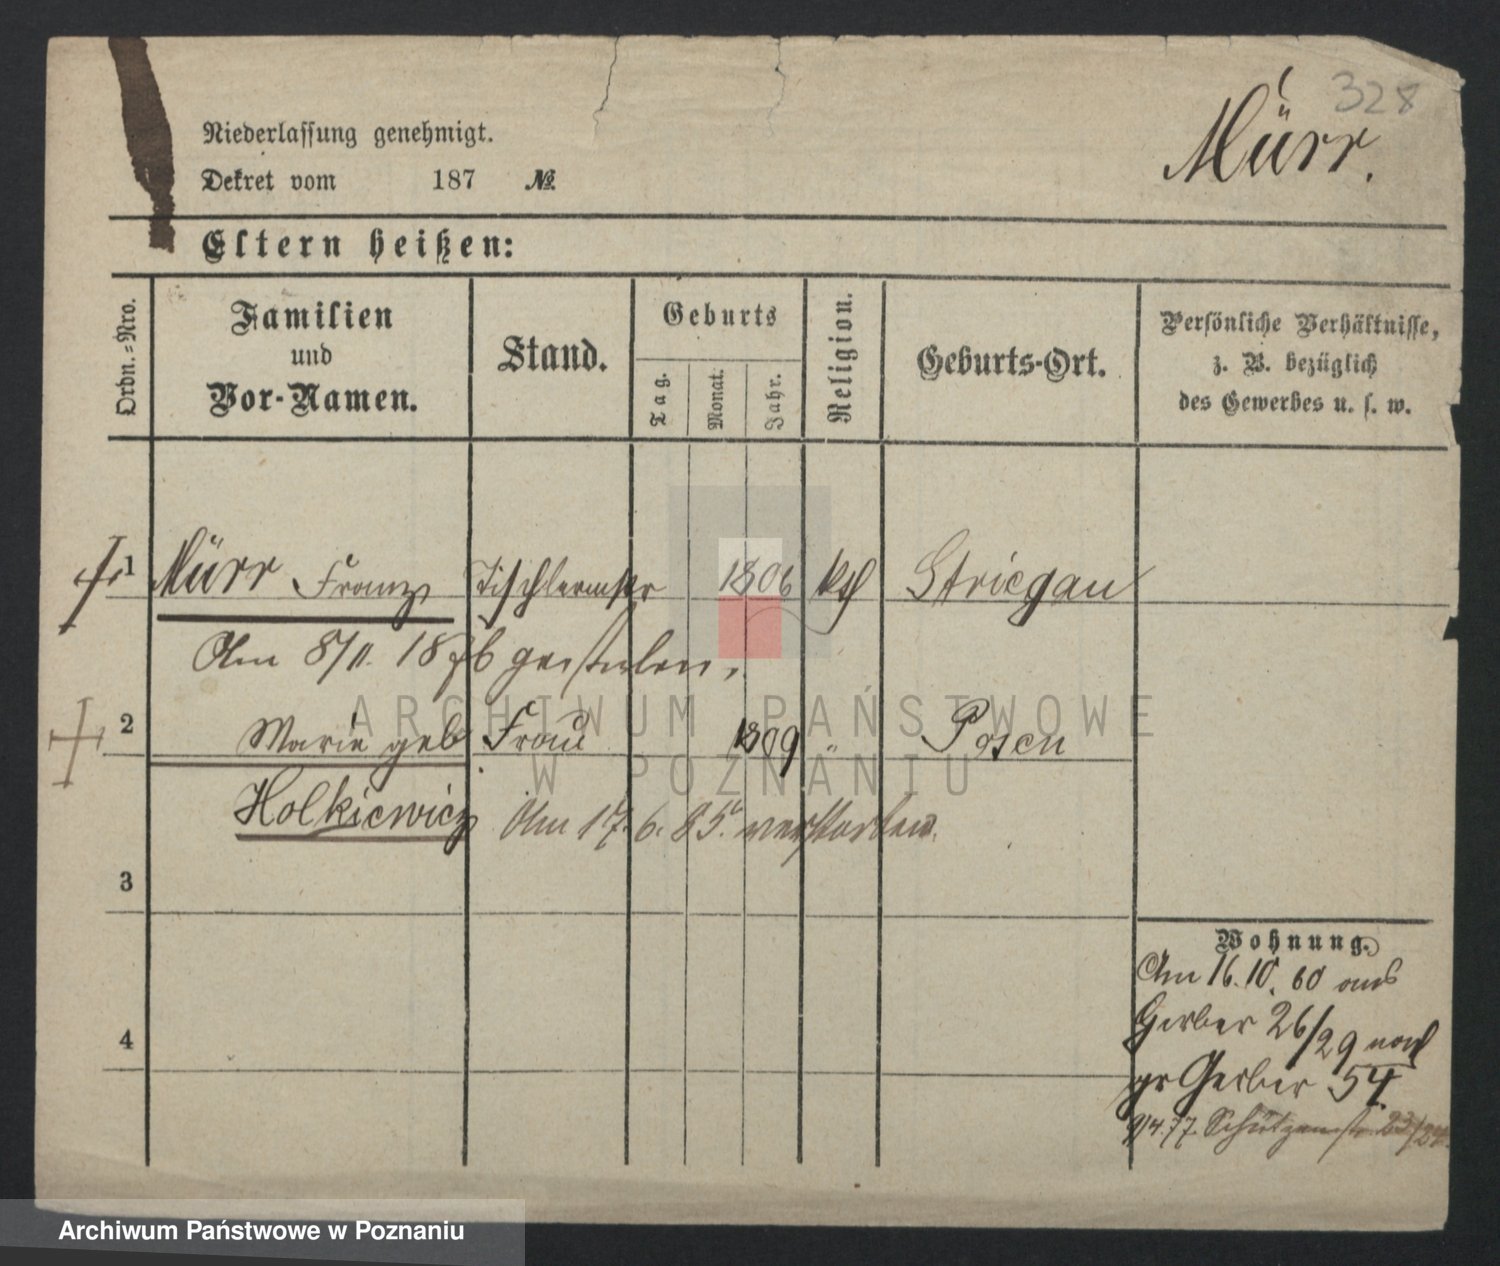 328
Mürr.
Niederlassung genehmigt.
Dekret vom 187 №
Eltern heißen:
Ordn.=Nro.
Familien
und
Vor-Namen.
Stand.
Geburts
Tag.
Monat.
Jahr.
Religion.
Geburts-Ort.
Persönliche Verhältnisse,
z. B. bezüglich
des Gewerbes u. s. w.
1 Mürr Franz Tischlermstr 1806 kth Striegau
Am 8/11. 1876 gestorben.
2 Marie geb Frau 1809 " Posen
Holkiewicz Am 17.6.85. verstorben.
3
4
Wohnung.
Am 16.10.60 aus
Gerber 26/29 nach
gr Gerber 54
9/4.77. Schützenstr. 23/24.
ARCHIWUM PAŃSTWOWE
W POZNANIU
Archiwum Państwowe w Poznaniu